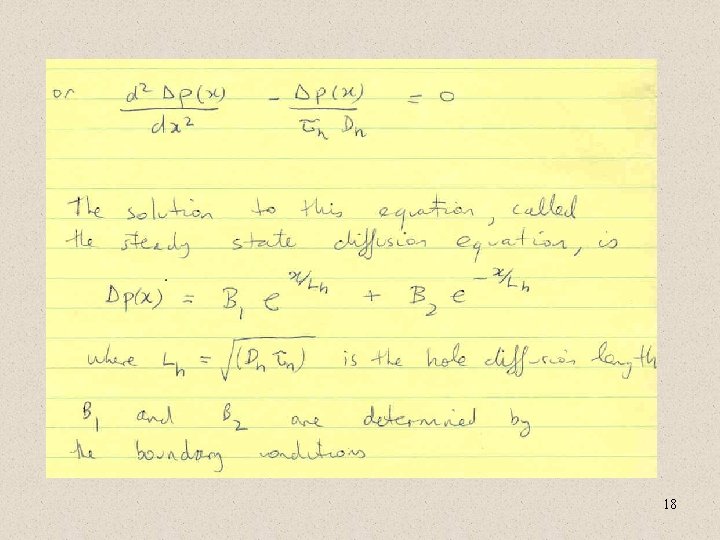 or d²Δp(x)/dx² - Δp(x)/τₕ Dₕ = 0
The solution to this equation, called
the steady state diffusion equation, is
Δp(x) = B₁ e^(x/Lₕ) + B₂ e^(-x/Lₕ)
where Lₕ = √(Dₕ τₕ) is the hole diffusion length
B₁ and B₂ are determined by
the boundary conditions
18